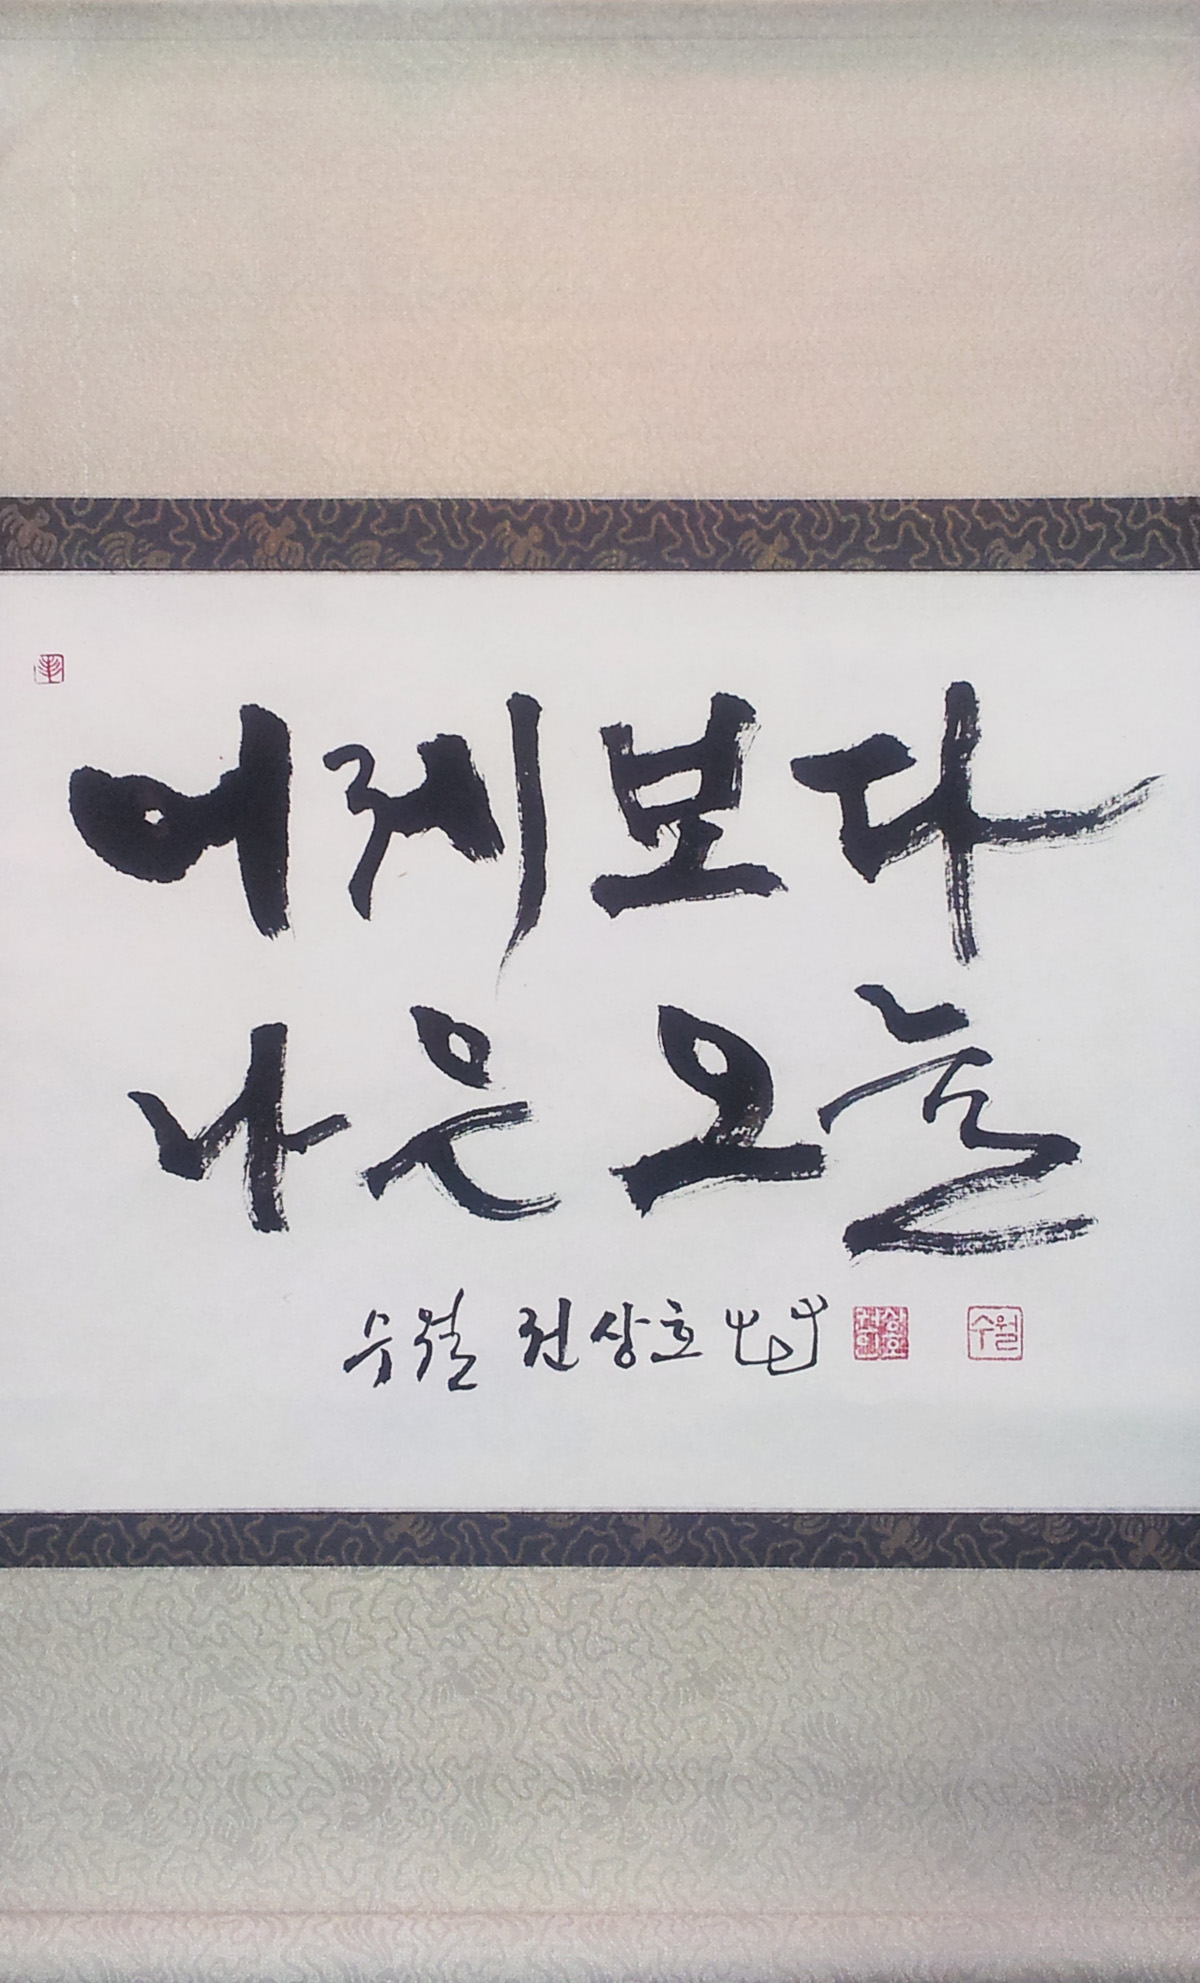 어제보다
나은 오늘
수월 권상호 수월